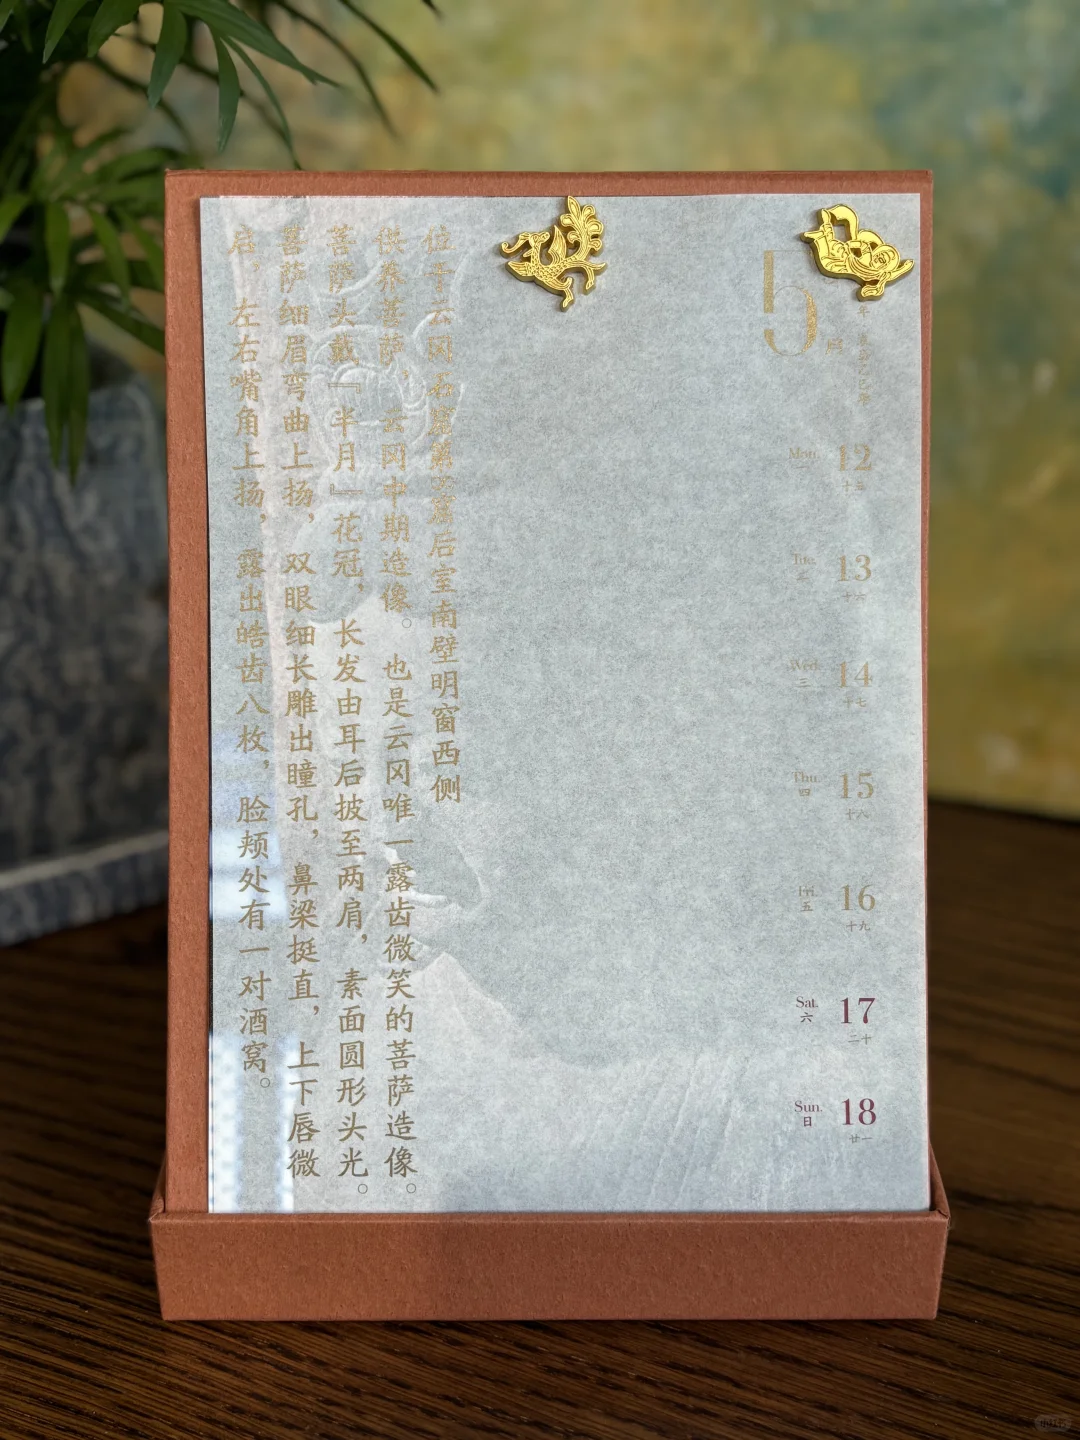 位于云冈石窟第八窟后室南壁明窗西侧
供养菩萨，云冈中期造像。也是云冈唯一露齿微笑的菩萨造像。
菩萨头戴『半月』花冠，长发由耳后披至两肩，素面圆形头光。
菩萨细眉弯曲上扬，双眼细长雕出瞳孔，鼻梁挺直，上下唇微
启，左右嘴角上扬，露出皓齿八枚，脸颊处有一对酒窝。
5
年
Mon. 12
Tue. 13
二 十六
Wed. 14
三 十七
Thu. 15
四 十八
Fri. 16
五 十九
Sat. 17
六 二十
Sun. 18
日 廿一